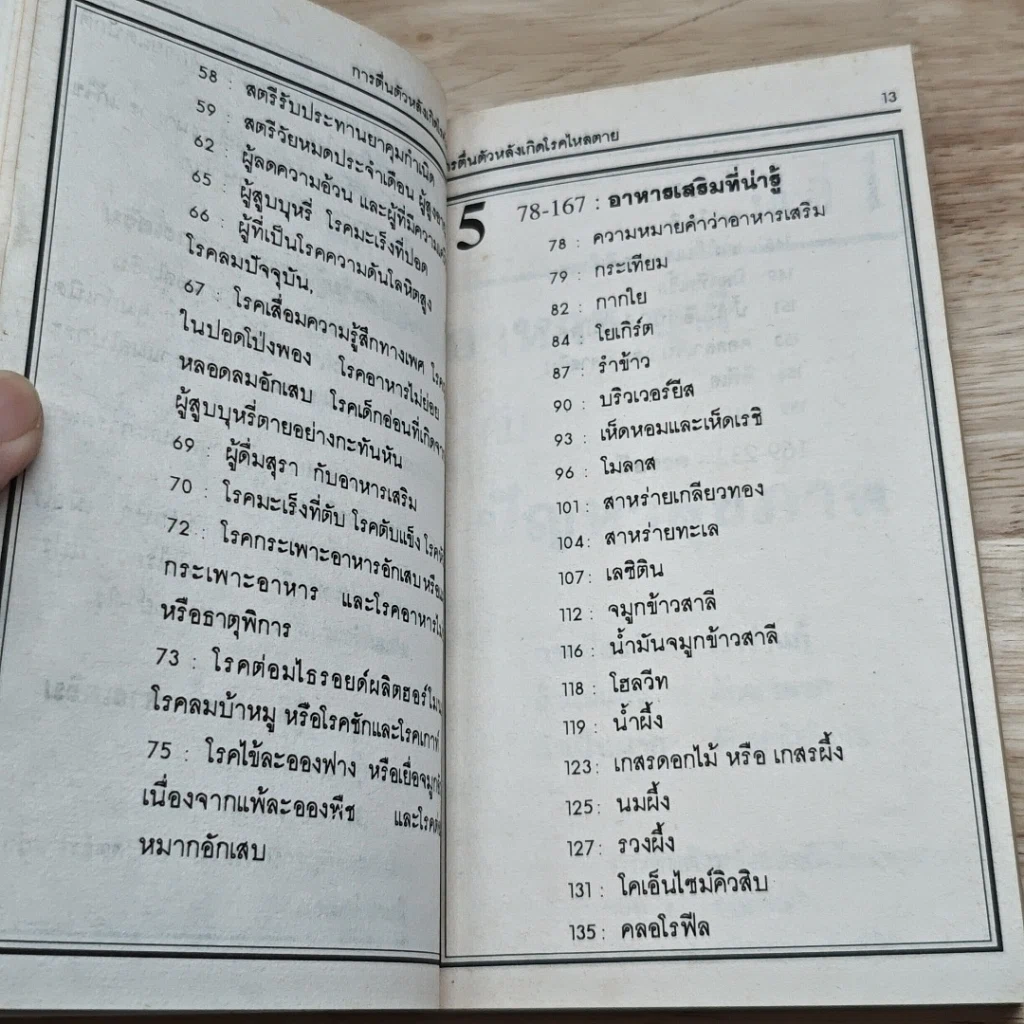 การตื่นตัวหลังเกิด
58 : สตรีรับประทานยาคุมกำเนิด
59 : สตรีวัยหมดประจำเดือน
62 : ผู้ลดความอ้วน และผู้ที่มีความ
65 : ผู้สูบบุหรี่ โรคมะเร็งที่ปอด
66 : ผู้ที่เป็นโรคความดันโลหิตสูง
โรคลมปัจจุบัน,
67 : โรคเสื่อมความรู้สึกทางเพศ
ในปอดโป่งพอง โรคอาหารไม่ย่อย
หลอดลมอักเสบ โรคเด็กอ่อนที่เกิดจาก
ผู้สูบบุหรี่ตายอย่างกะทันหัน
69 : ผู้ดื่มสุรา กับอาหารเสริม
70 : โรคมะเร็งที่ตับ โรคตับแข็ง
72 : โรคกระเพาะอาหารอักเสบ
กระเพาะอาหาร และโรคอาหาร
หรือธาตุพิการ
73 : โรคต่อมไธรอยด์ผลิตฮอร์โมน
โรคลมบ้าหมู หรือโรคชักและโรคเกาท์
75 : โรคไข้ละอองฟาง หรือเยื่อจมูก
เนื่องจากแพ้ละอองพืช และโรค
หมากอักเสบ
13
ารตื่นตัวหลังเกิดโรคไหลตาย
5 78-167 : อาหารเสริมที่น่ารู้
78 : ความหมายคำว่าอาหารเสริม
79 : กระเทียม
82 : กากใย
84 : โยเกิร์ต
87 : รำข้าว
90 : บริวเวอร์ยีส
93 : เห็ดหอมและเห็ดเรชิ
96 : โมลาส
101 : สาหร่ายเกลียวทอง
104 : สาหร่ายทะเล
107 : เลซิติน
112 : จมูกข้าวสาลี
116 : น้ำมันจมูกข้าวสาลี
118 : โฮลวีท
119 : น้ำผึ้ง
123 : เกสรดอกไม้ หรือ เกสรผึ้ง
125 : นมผึ้ง
127 : รวงผึ้ง
131 : โคเอ็นไซม์คิวสิบ
135 : คลอโรฟีล